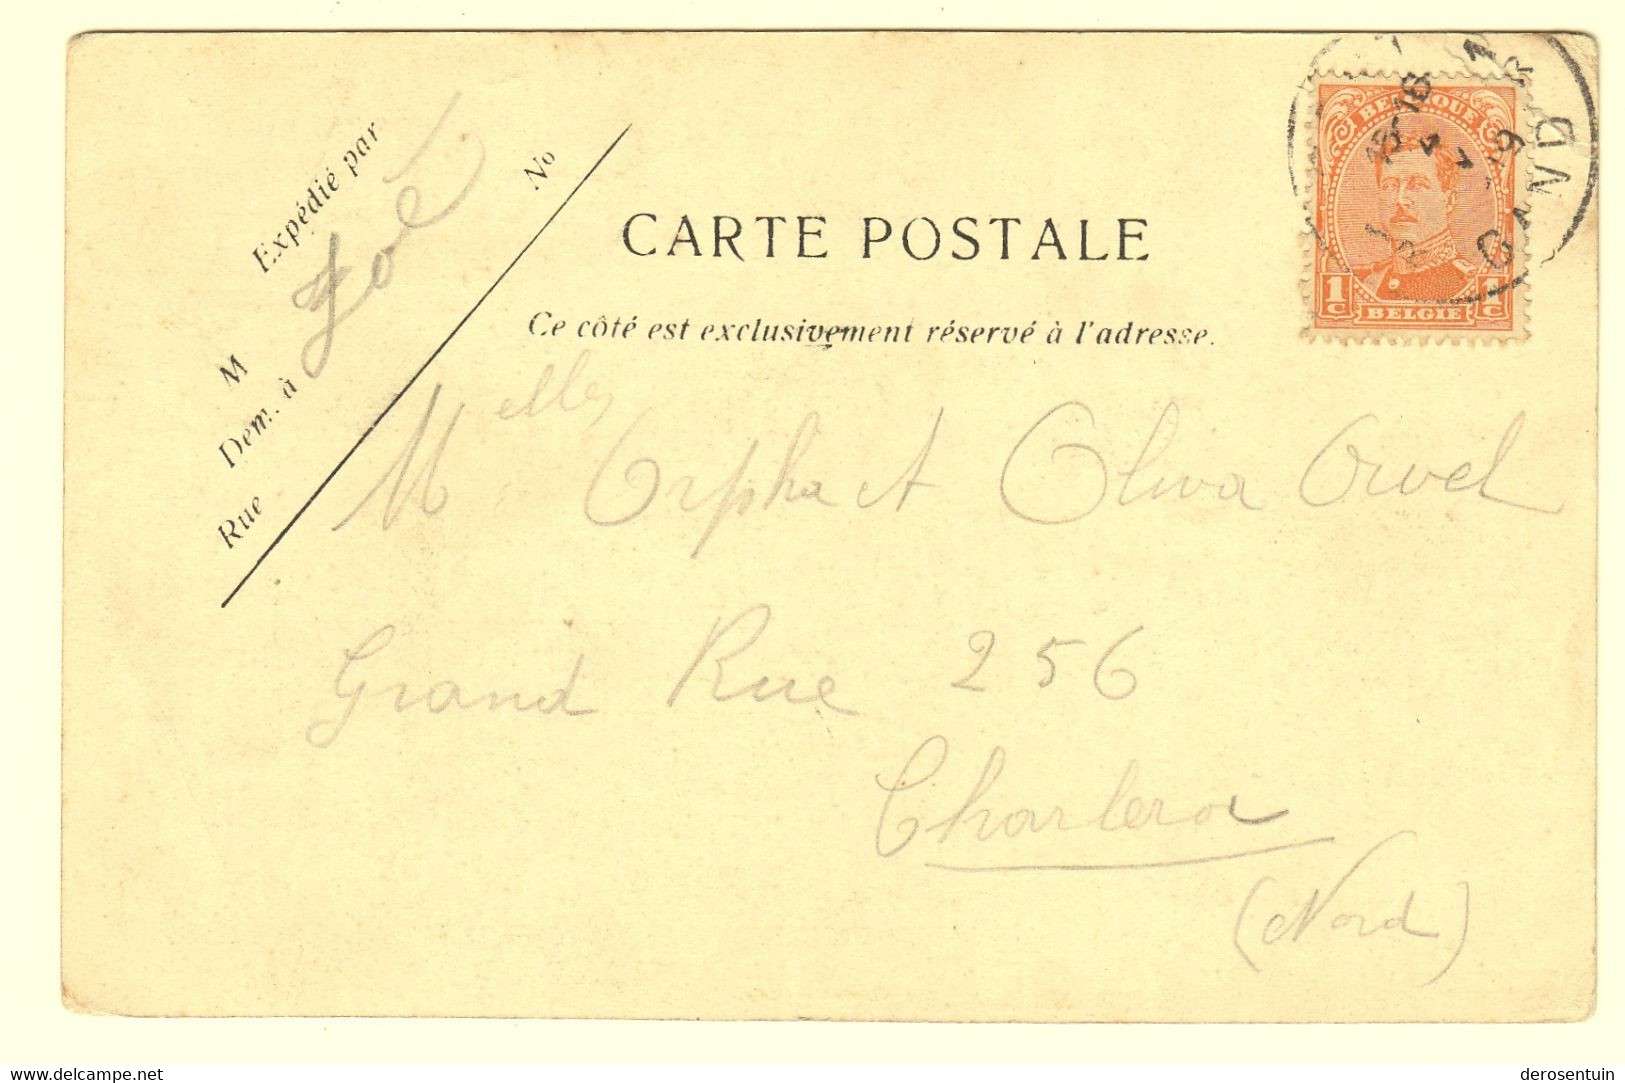 Expédié par
Zoé
No
M
Dem. à
Rue
CARTE POSTALE
Ce côté est exclusivement réservé à l'adresse.
BELGIQUE
1c 1c
BELGIË
GAND
Melles Orpha et Oliva Orvel
Grand Rue 256
Charleroi
(Nord)
www.delcampe.net
derosentuin